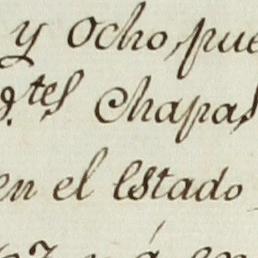 y Ocho, pue
g.tes Chapas
en el estado